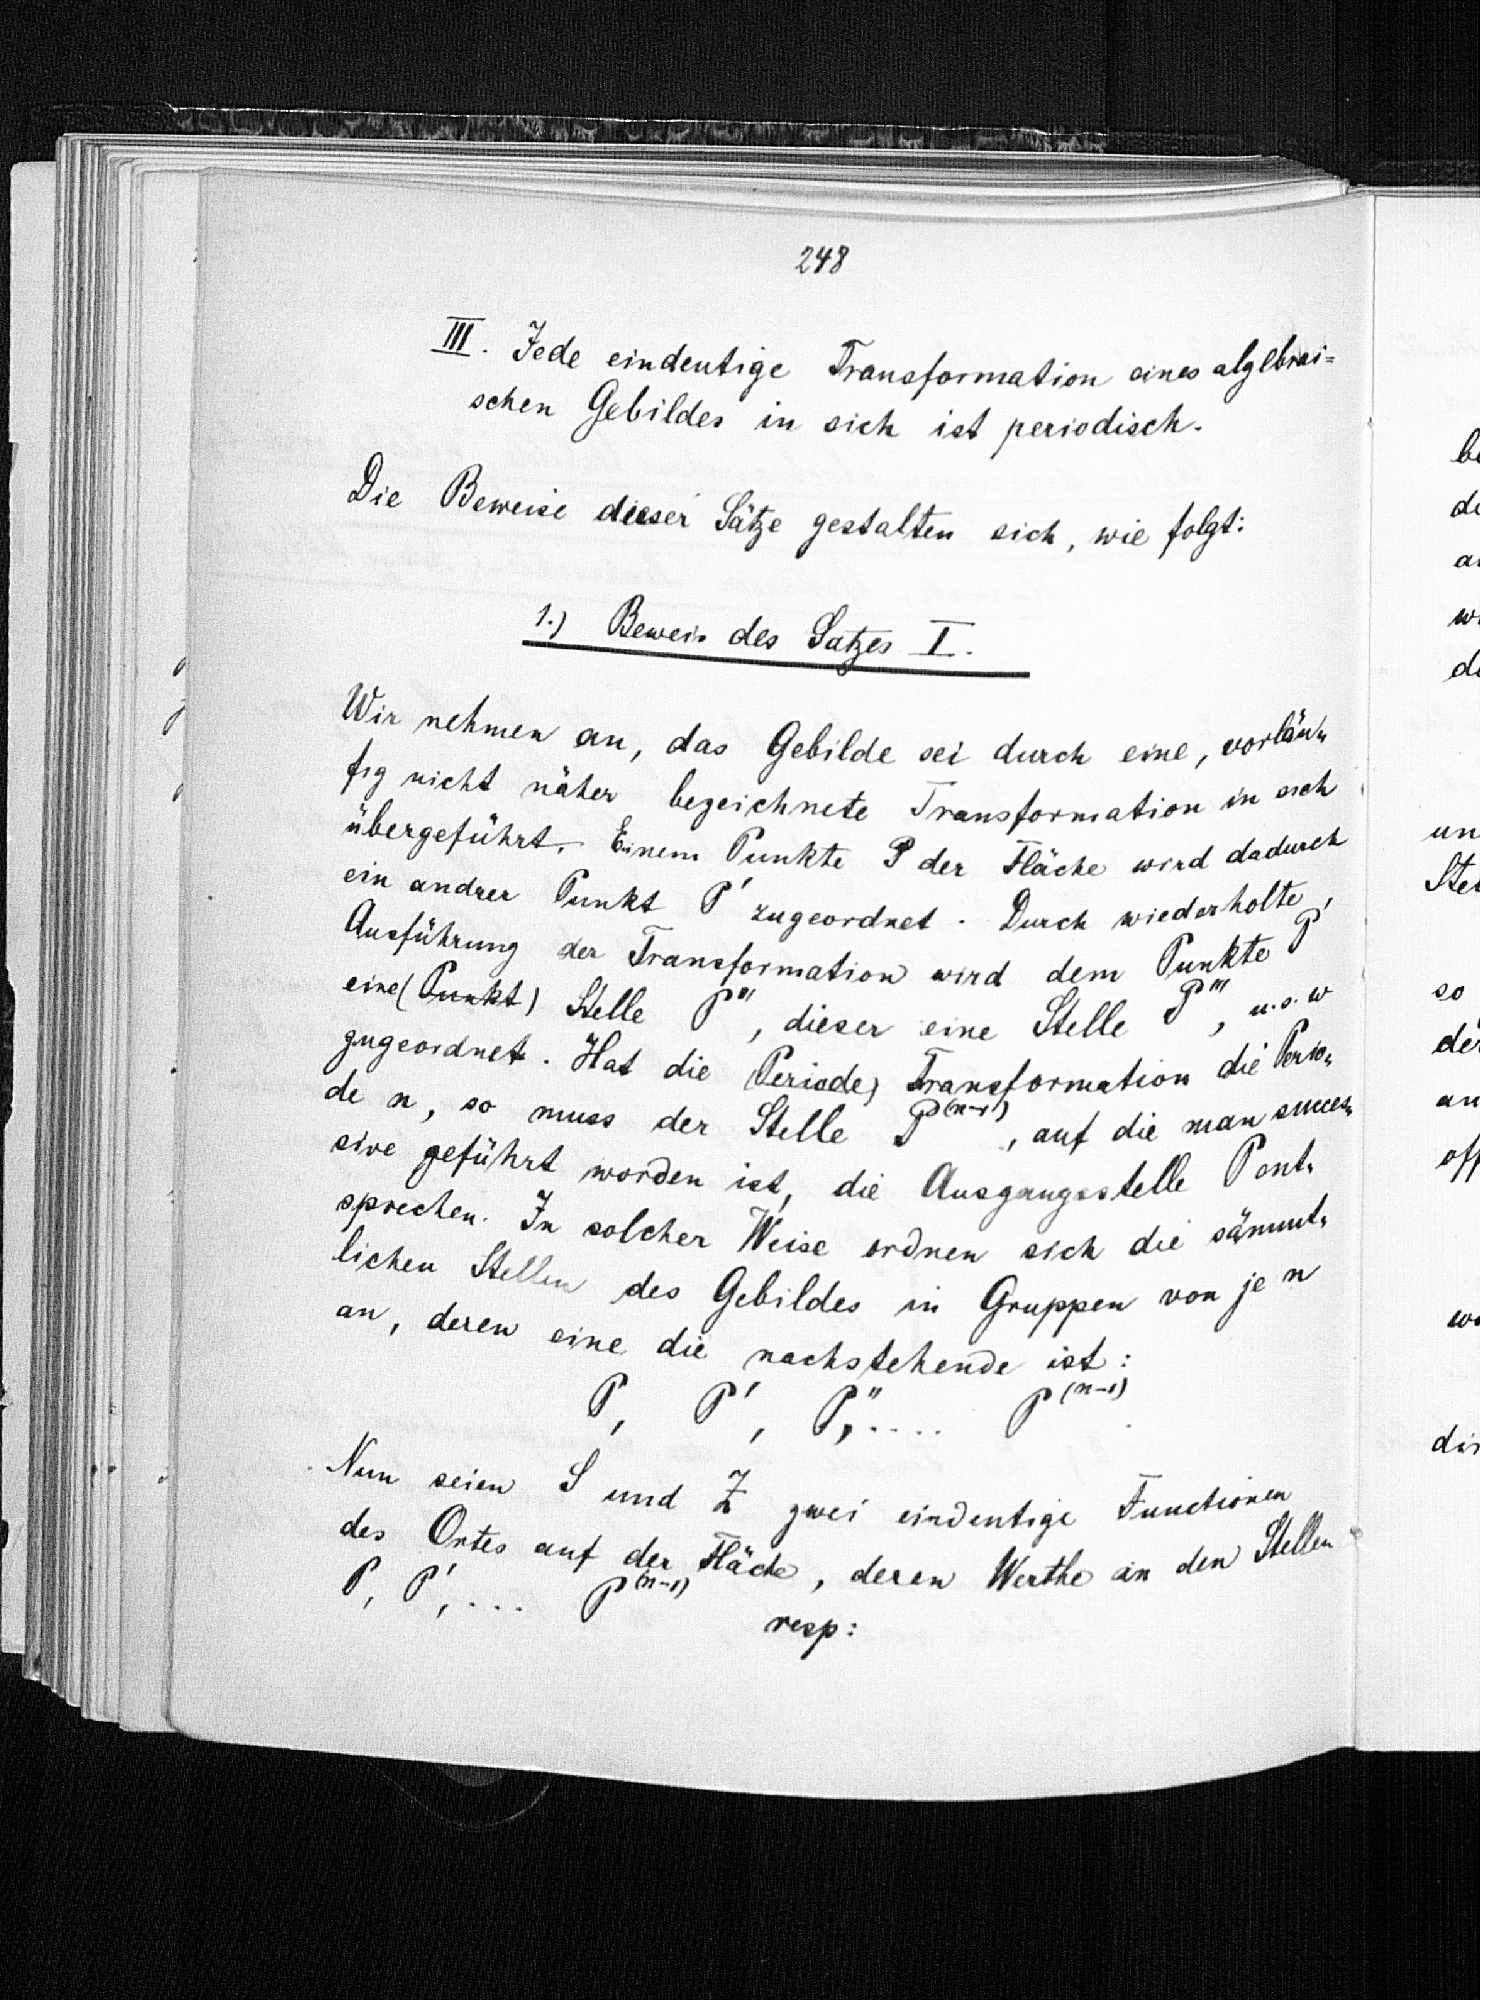 248
III. Jede eindeutige Transformation eines algebrai=
schen Gebildes in sich ist periodisch.
Die Beweise dieser Sätze gestalten sich, wie folgt:
1.) Beweis des Satzes I.
Wir nehmen an, das Gebilde sei durch eine, vorläu„
fig nicht näher bezeichnete Transformation in sich
übergeführt. Einem Punkte P der Fläche wird dadurch
ein andrer Punkt P' zugeordnet. Durch wiederholte
Ausführung der Transformation wird dem Punkte P'
eine (Punkt) Stelle P'', dieser eine Stelle P''', u.s.w
zugeordnet. Hat die (Periode) Transformation die Perio„
de n, so muss der Stelle P(n-1), auf die man succes„
sive geführt worden ist, die Ausgangsstelle P ent„
sprechen. In solcher Weise ordnen sich die sämmt„
lichen Stellen des Gebildes in Gruppen von je n
an, deren eine die nachstehende ist:
P, P', P'',.... P(n-1)
Nun seien S und Z zwei eindeutige Functionen
des Ortes auf der Fläche, deren Werthe in den Stellen
P, P',... P(n-1) resp:
be
de
wi
de
un
Stel
so
der
an
off
we
die